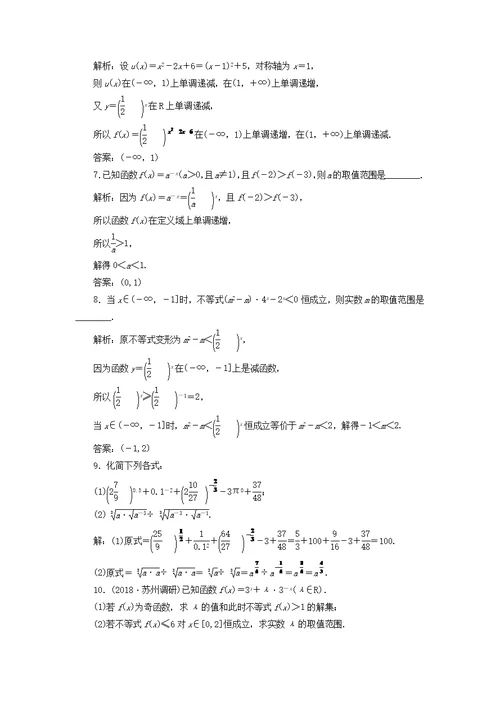 解析：设 u(x)＝x²－2x＋6＝(x－1)²＋5，对称轴为 x＝1，
则 u(x)在(－∞，1)上单调递减，在(1，＋∞)上单调递增，
又 y＝(1/2)ˣ在 R 上单调递减，
所以 f(x)＝(1/2)x² 2x 6在(－∞，1)上单调递增，在(1，＋∞)上单调递减．
答案：(－∞，1)
7．已知函数f(x)＝a⁻ˣ(a＞0，且a≠1)，且f(－2)＞f(－3)，则a的取值范围是________．
解析：因为 f(x)＝a⁻ˣ＝(1/a)ˣ，且 f(－2)＞f(－3)，
所以函数 f(x)在定义域上单调递增，
所以1/a＞1，
解得 0＜a＜1.
答案：(0,1)
8．当 x∈(－∞，－1]时，不等式(m²－m)·4ˣ－2ˣ＜0 恒成立，则实数 m 的取值范围是
________．
解析：原不等式变形为 m²－m＜(1/2)ˣ，
因为函数 y＝(1/2)ˣ在(－∞，－1]上是减函数，
所以(1/2)ˣ≥(1/2)⁻¹＝2，
当 x∈(－∞，－1]时，m²－m＜(1/2)ˣ恒成立等价于 m²－m＜2，解得－1＜m＜2.
答案：(－1,2)
9．化简下列各式：
(1)(2 7/9)⁰·⁵＋0.1⁻²＋(2 10/27)^－2/3－3π⁰＋37/48；
解：(1)原式＝(25/9)^1/2＋1/0.1²＋(64/27)^－2/3－3＋37/48＝5/3＋100＋9/16－3＋37/48＝100.
10．(2018·苏州调研)已知函数 f(x)＝3ˣ＋λ·3⁻ˣ(λ∈R)．
(1)若 f(x)为奇函数，求 λ 的值和此时不等式 f(x)＞1 的解集；
(2)若不等式 f(x)≤6 对 x∈[0,2]恒成立，求实数 λ 的取值范围．